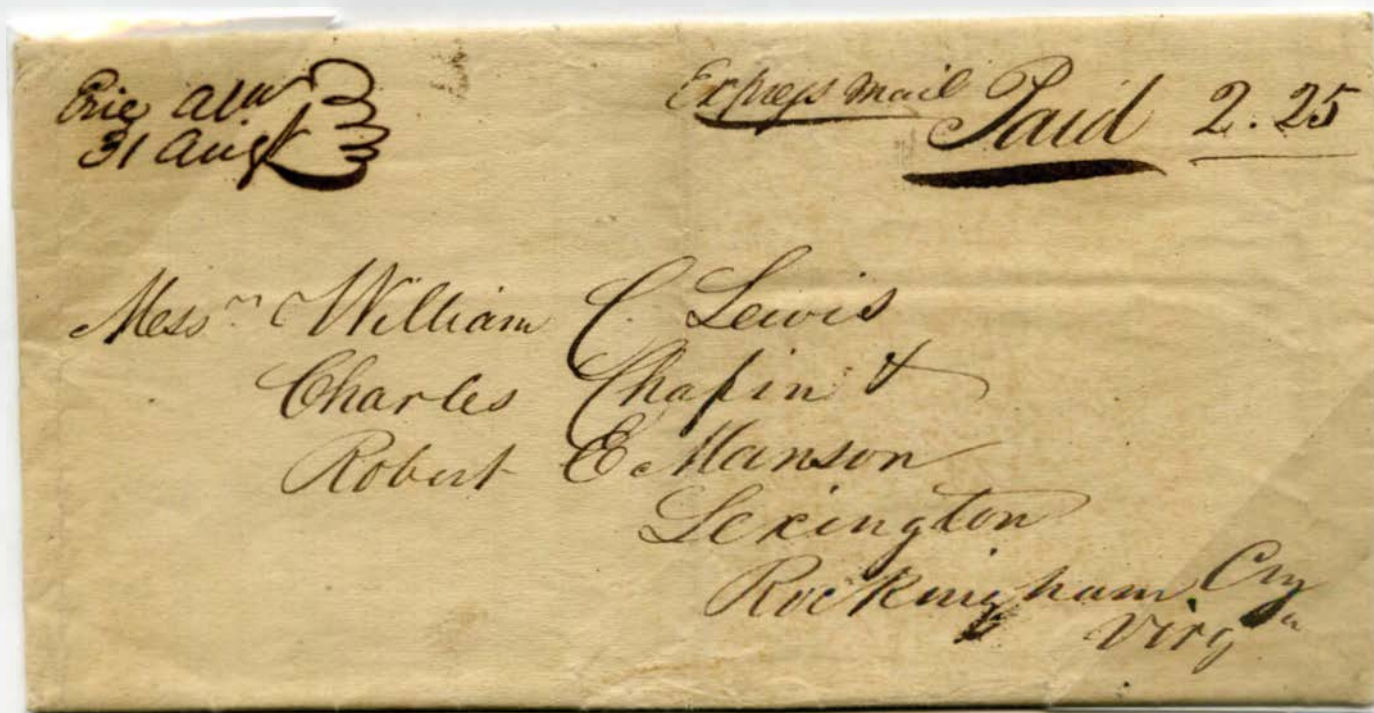 Erie Alaᵃ
31 Augt
Express Mail Paid 2.25
Messrs William C. Lewis
Charles Chapin &
Robert E Manson
Lexington
Rockingham Cty
Virgᵃ